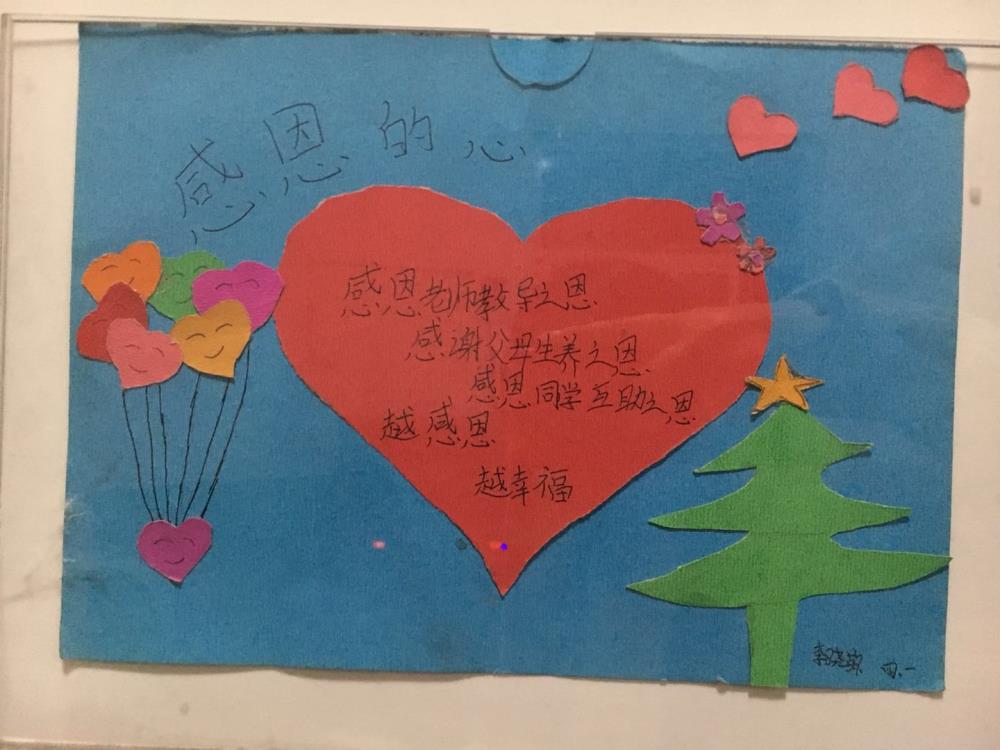 感恩的心
感恩老师教导之恩
感谢父母生养之恩
感恩同学互助之恩
越感恩
越幸福
四.一